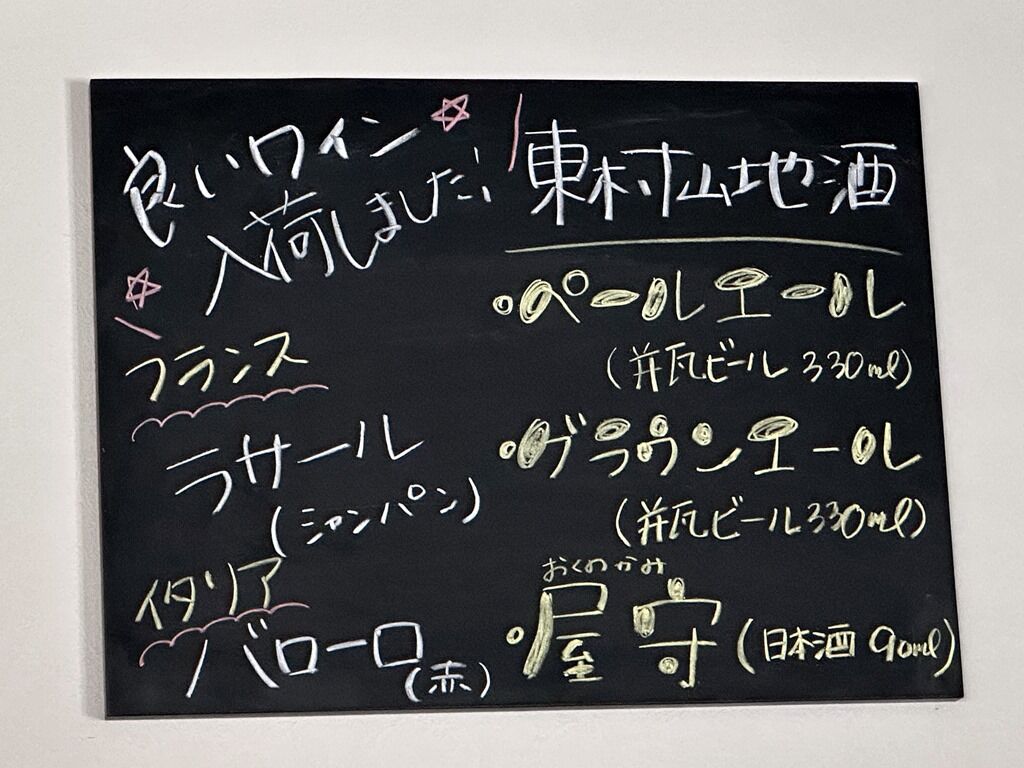 良いワイン
入荷しました!
フランス
ラサール
(シャンパン)
イタリア
バローロ
(赤)
東村山地酒
・ペールエール
(井瓦ビール 330ml)
・ブラウンエール
(井瓦ビール330ml)
おくのかみ
・屋守(日本酒 90ml)